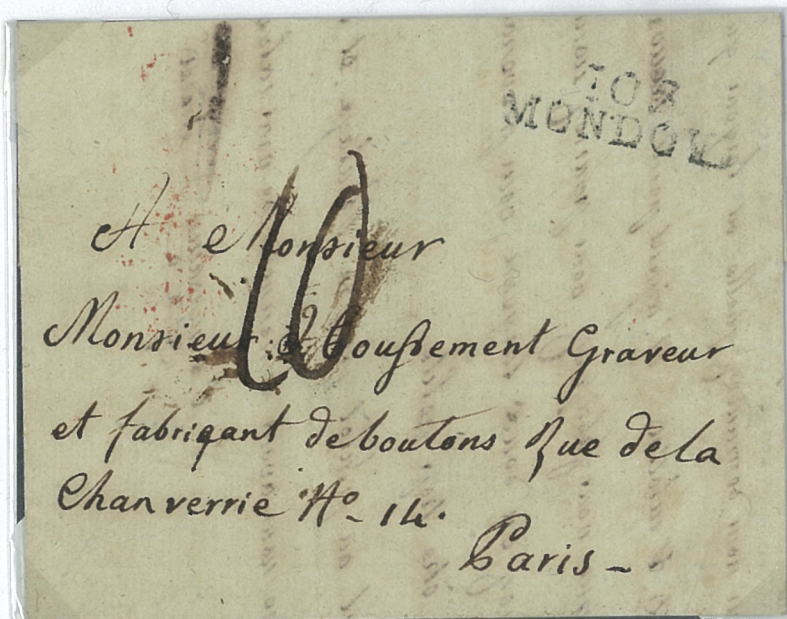 103
MONDOV
A Monsieur
10
Monsieur Graveur
et fabriqant de boutons Rue de la
Chanverrie No - 14.
Paris -